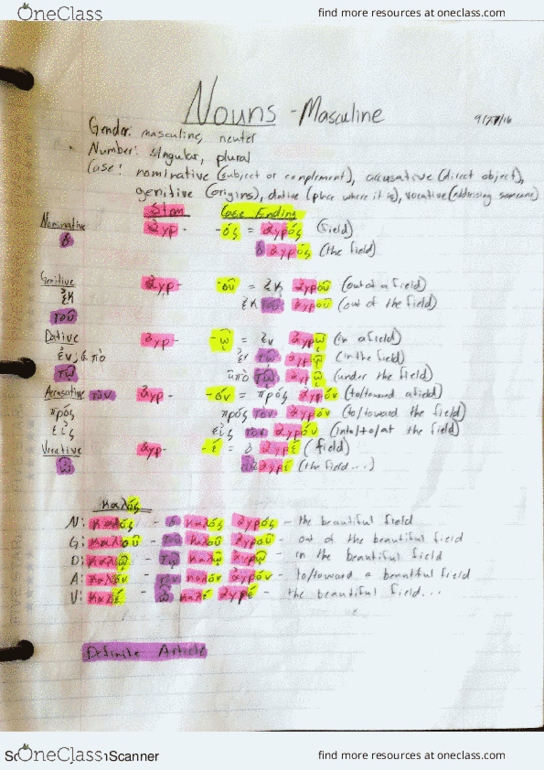 OneClass find more resources at oneclass.com
Nouns - Masculine
9/27/16
Gender: masculine, neuter
Number: singular, plural
Case: nominative (subject or complement), accusative (direct object),
genitive (origins), dative (place where it is), vocative (addressing someone)
Stem Case Ending
Nominative ἀγρ- -ός = ἀγρός (field)
ὁ ὁ ἀγρός (the field)
Genitive ἀγρ- -οῦ = ἐκ ἀγροῦ (out of a field)
ἐκ ἐκ τοῦ ἀγροῦ (out of the field)
τοῦ
Dative ἀγρ- -ῷ = ἐν ἀγρῷ (in a field)
ἐν, ὑπὸ ἐν τῷ ἀγρῷ (in the field)
τῷ ὑπὸ τῷ ἀγρῷ (under the field)
Accusative τὸν ἀγρ- -όν = πρός ἀγρόν (to/toward a field)
πρός πρός τον ἀγρόν (to/toward the field)
εἰς εἰς τον ἀγρόν (into/to/at the field)
Vocative ἀγρ- -έ = ἀγρέ (field)
ὦ ὦ ἀγρέ (the field...)
καλός
N: καλός - ὁ καλός ἀγρός - the beautiful field
G: καλοῦ - τοῦ καλοῦ ἀγροῦ - out of the beautiful field
D: καλῷ - τῷ καλῷ ἀγρῷ - in the beautiful field
A: καλόν - τὸν καλόν ἀγρόν - to/toward a beautiful field
V: καλέ - ὦ καλέ ἀγρέ - the beautiful field...
Definite Article
OneClass Scanner find more resources at oneclass.com